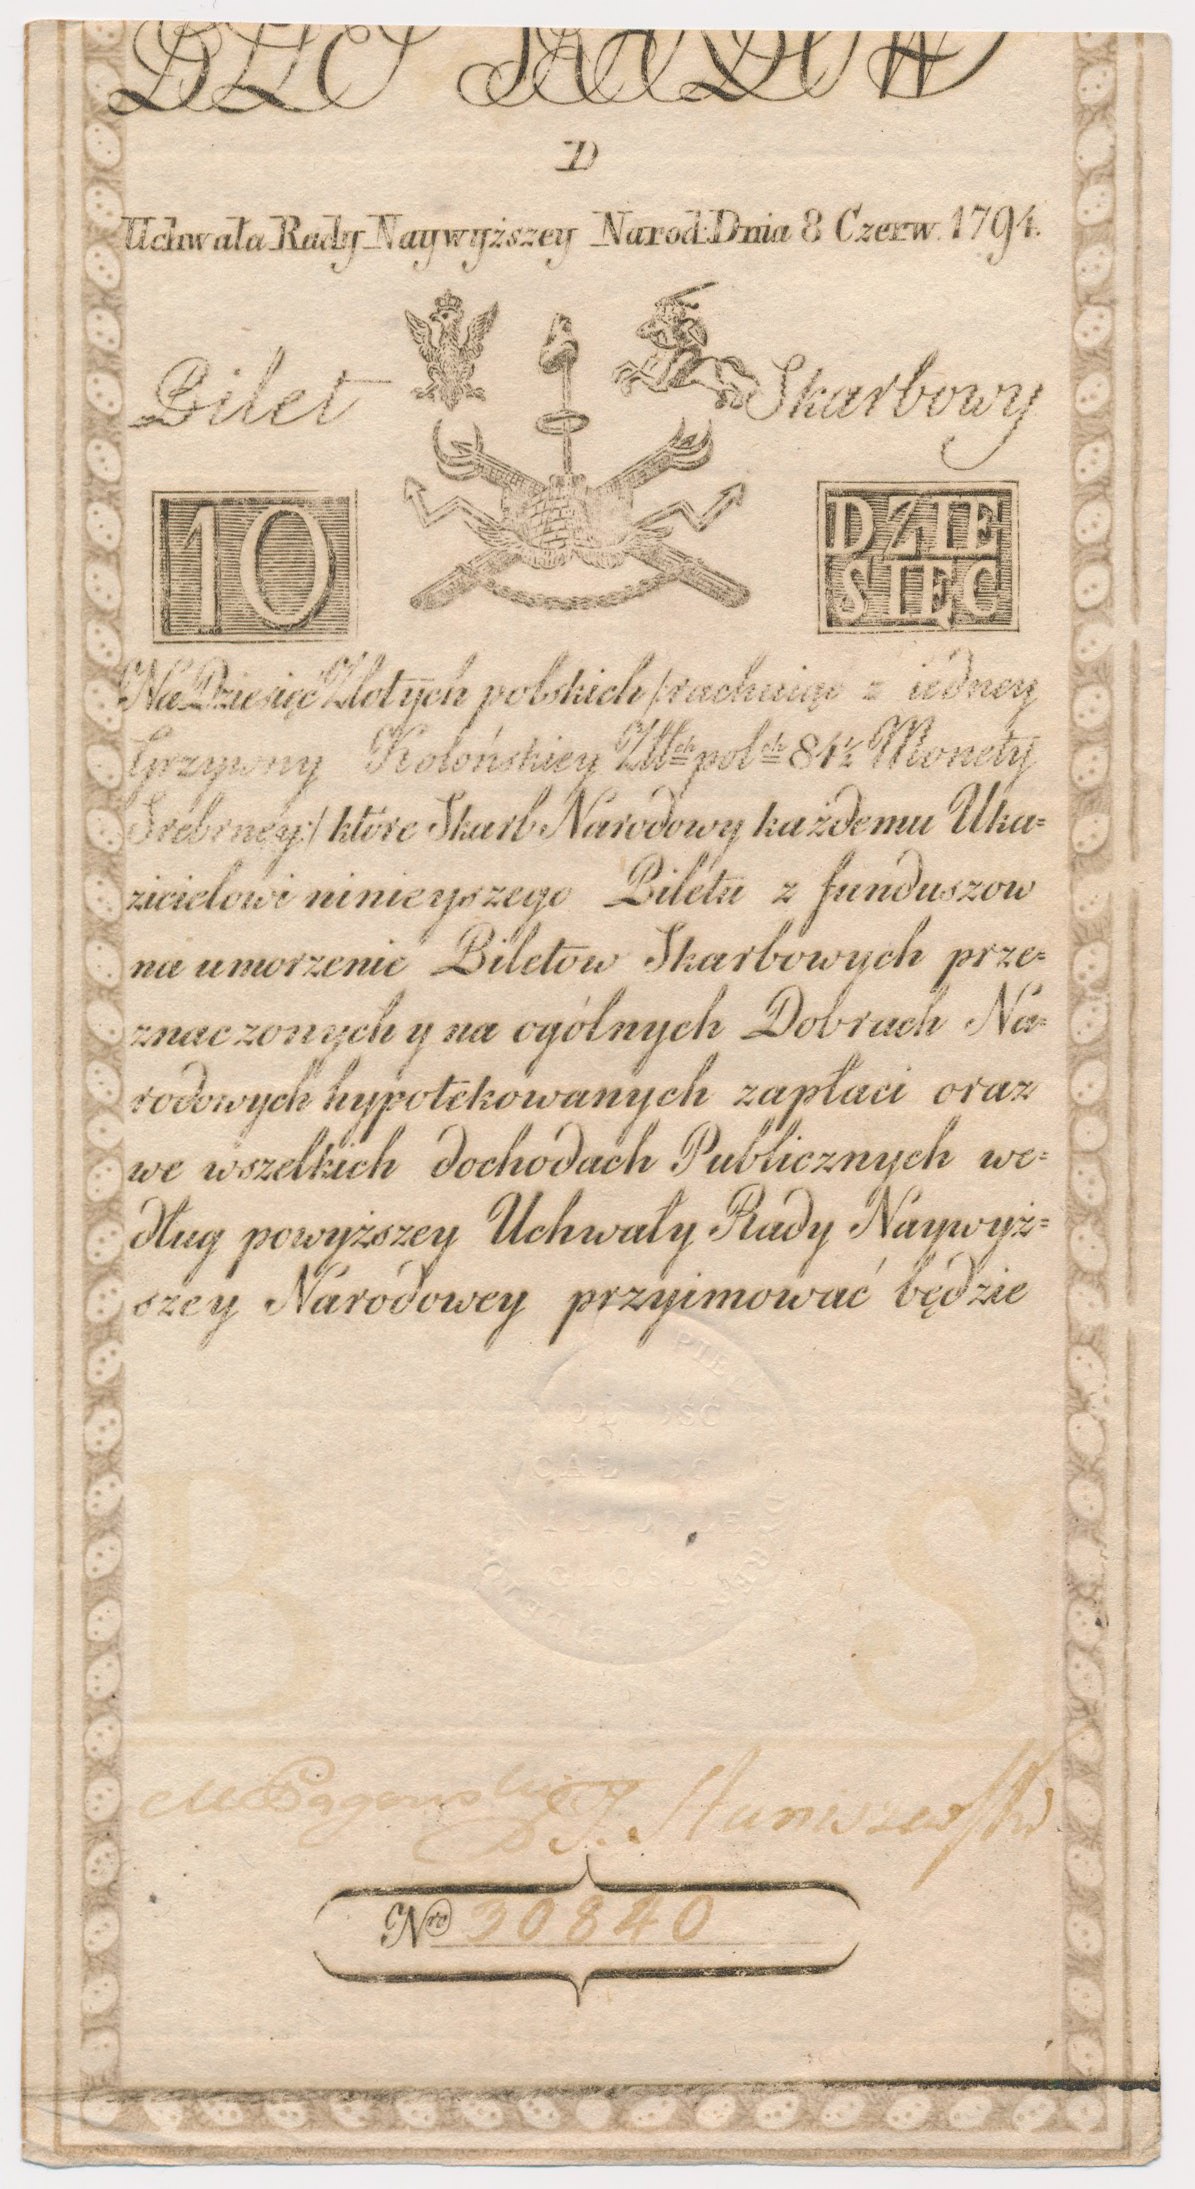 D
Uchwała Rady Naywyższey Narod: Dnia 8 Czerw. 1794.
Bilet Skarbowy
10
DZIE
SIĘĆ
Na Dziesięć Złotych polskich /:rachuiąc z iedney
Grzywny Kolońskiey Złł:ch pol:ch 84½ Monety
Srebrney:/ które Skarb Narodowy każdemu Uka=
zicielowi ninieyszego Biletu z funduszow
na umorzenie Biletow Skarbowych prze=
znaczonych y na ogólnych Dobrach Na=
rodowych hypotekowanych zapłaci oraz
we wszelkich dochodach Publicznych we=
dług powyższey Uchwały Rady Naywyż=
szey Narodowey przyimować będzie
B S
J. Staniszewski
Nro 30840